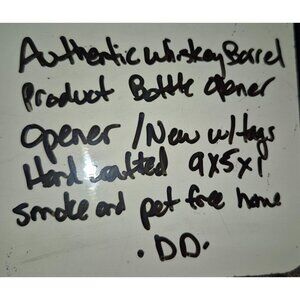 Authentic whiskey Barrel
Product Bottle Opener
Opener / New w/tags
Hand crafted 9x5x1
smoke and pet free home
• DD •